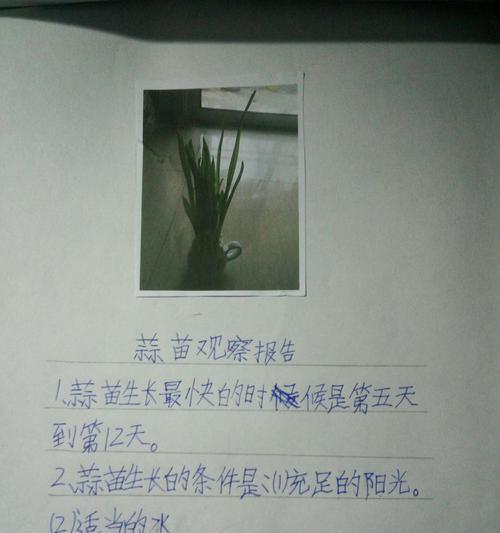 蒜苗观察报告
1、蒜苗生长最快的时候是第五天
到第12天。
2、蒜苗生长的条件是:(1)充足的阳光。
(2)适当的水